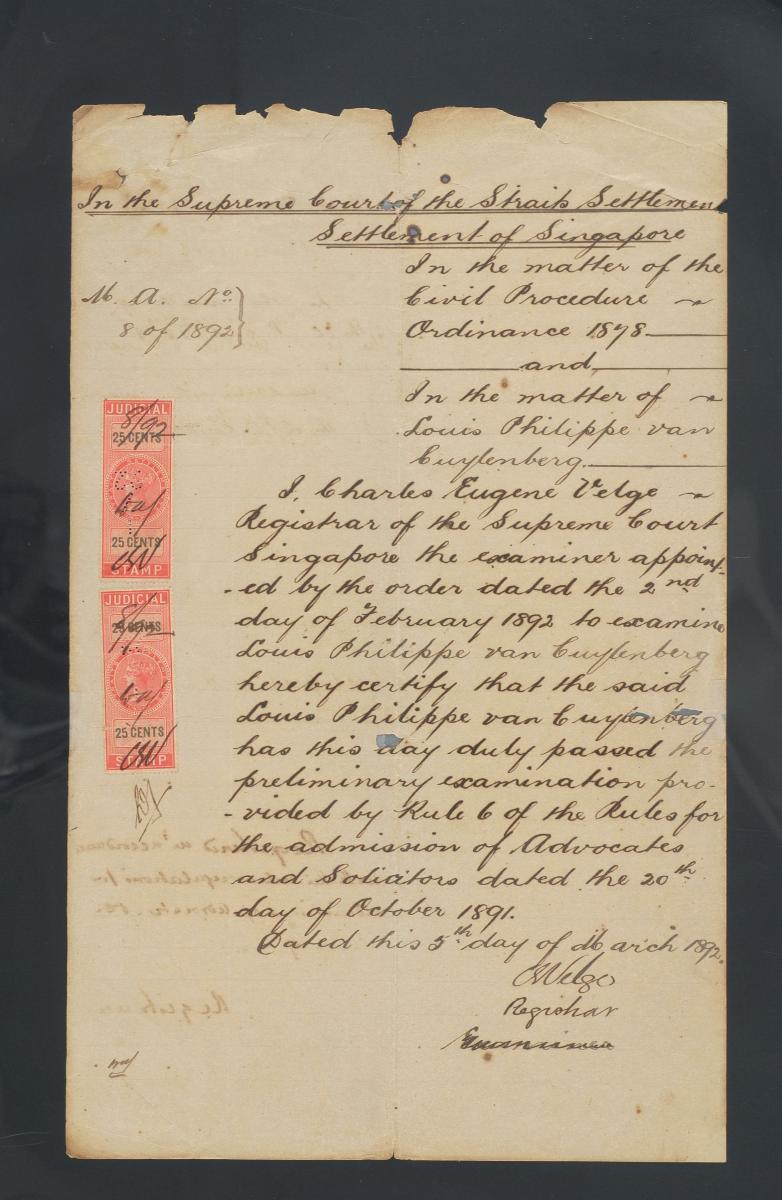 In the Supreme Court of the Straits Settlemen
Settlement of Singapore
M. A. No.
8 of 1892
In the matter of the
Civil Procedure
Ordinance 1878
and
In the matter of
Louis Philippe van
Cuylenberg
I, Charles Eugene Velge
Registrar of the Supreme Court
Singapore the examiner appoint-
-ed by the order dated the 2nd
day of February 1892 to examine
Louis Philippe van Cuylenberg
hereby certify that the said
Louis Philippe van Cuylenberg
has this day duly passed the
preliminary examination pro-
-vided by Rule 6 of the Rules for
the admission of Advocates
and Solicitors dated the 20th
day of October 1891.
Dated this 5th day of March 1892.
CEVelge
Registrar
JUDICIAL
8/92
25 CENTS
25 CENTS
STAMP
JUDICIAL
25 CENTS
25 CENTS
STAMP